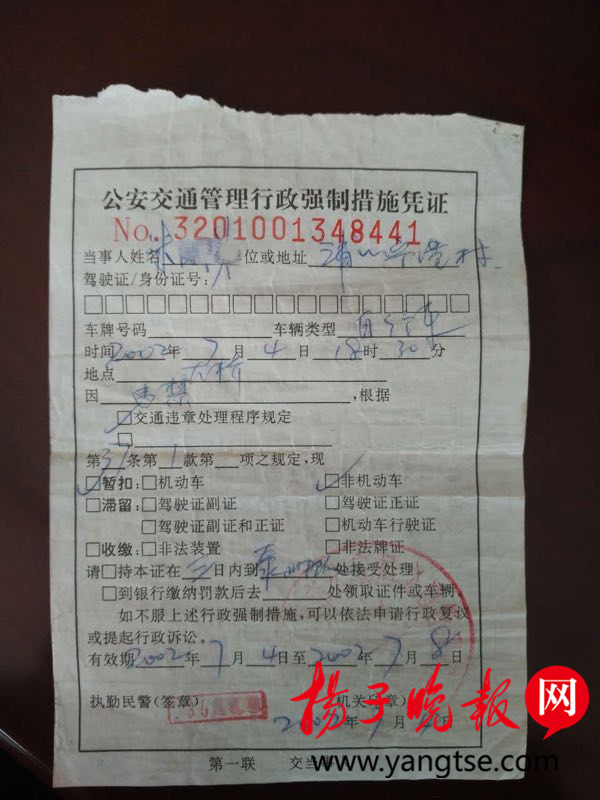 公安交通管理行政强制措施凭证
No. 3201001348441
当事人姓名 位或地址 村
驾驶证/身份证号：
车牌号码 车辆类型 自行车
时间 2002年 7月 4日 18时 30分
地点 大桥
因 ，根据
□交通违章处理程序规定
□
第 37 条第 1 款第 项之规定，现
□暂扣：□机动车 □非机动车
□滞留：□驾驶证副证 □驾驶证正证
□驾驶证副证和正证 □机动车行驶证
□收缴：□非法装置 □非法牌证
请□持本证在 三 日内到 泰 处接受处理。
□到银行缴纳罚款后去 处领取证件或车辆。
如不服上述行政强制措施，可以依法申请行政复议
或提起行政诉讼。
有效期 2002年 7月 4日至 2002年 7月 8日
执勤民警（签章） 机关 章）
年 月 日
扬子晚报网
www.yangtse.com
第一联 交当